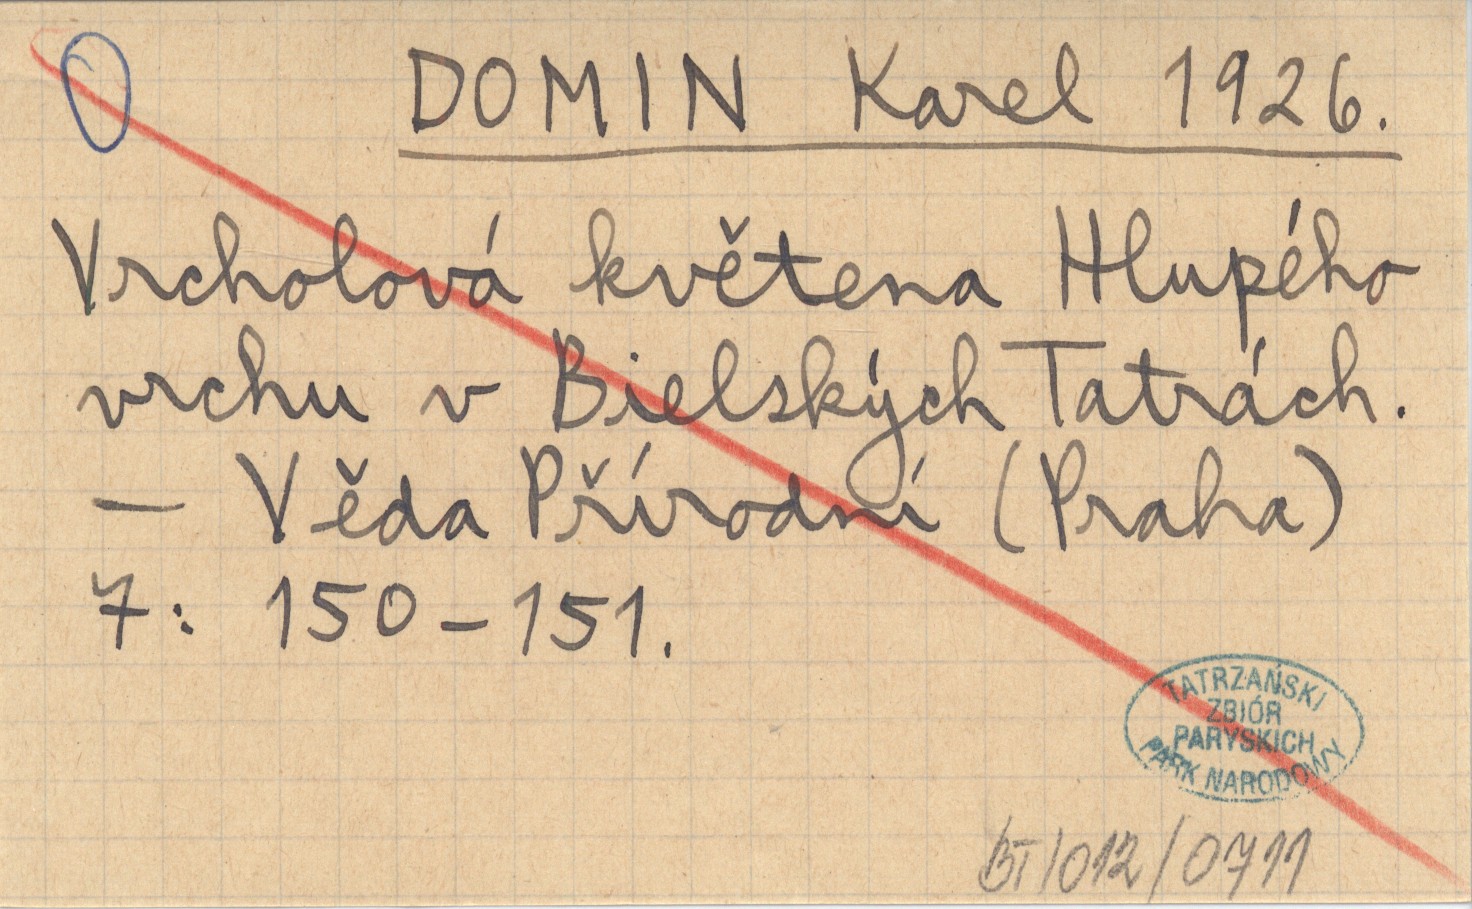 DOMIN Karel 1926.
Vrcholová květena Hlupého
vrchu v Bielských Tatrách.
— Věda Přírodní (Praha)
7: 150-151.
TATRZAŃSKI
ZBIÓR
PARYSKICH
PARK NARODOWY
BT/012/0711